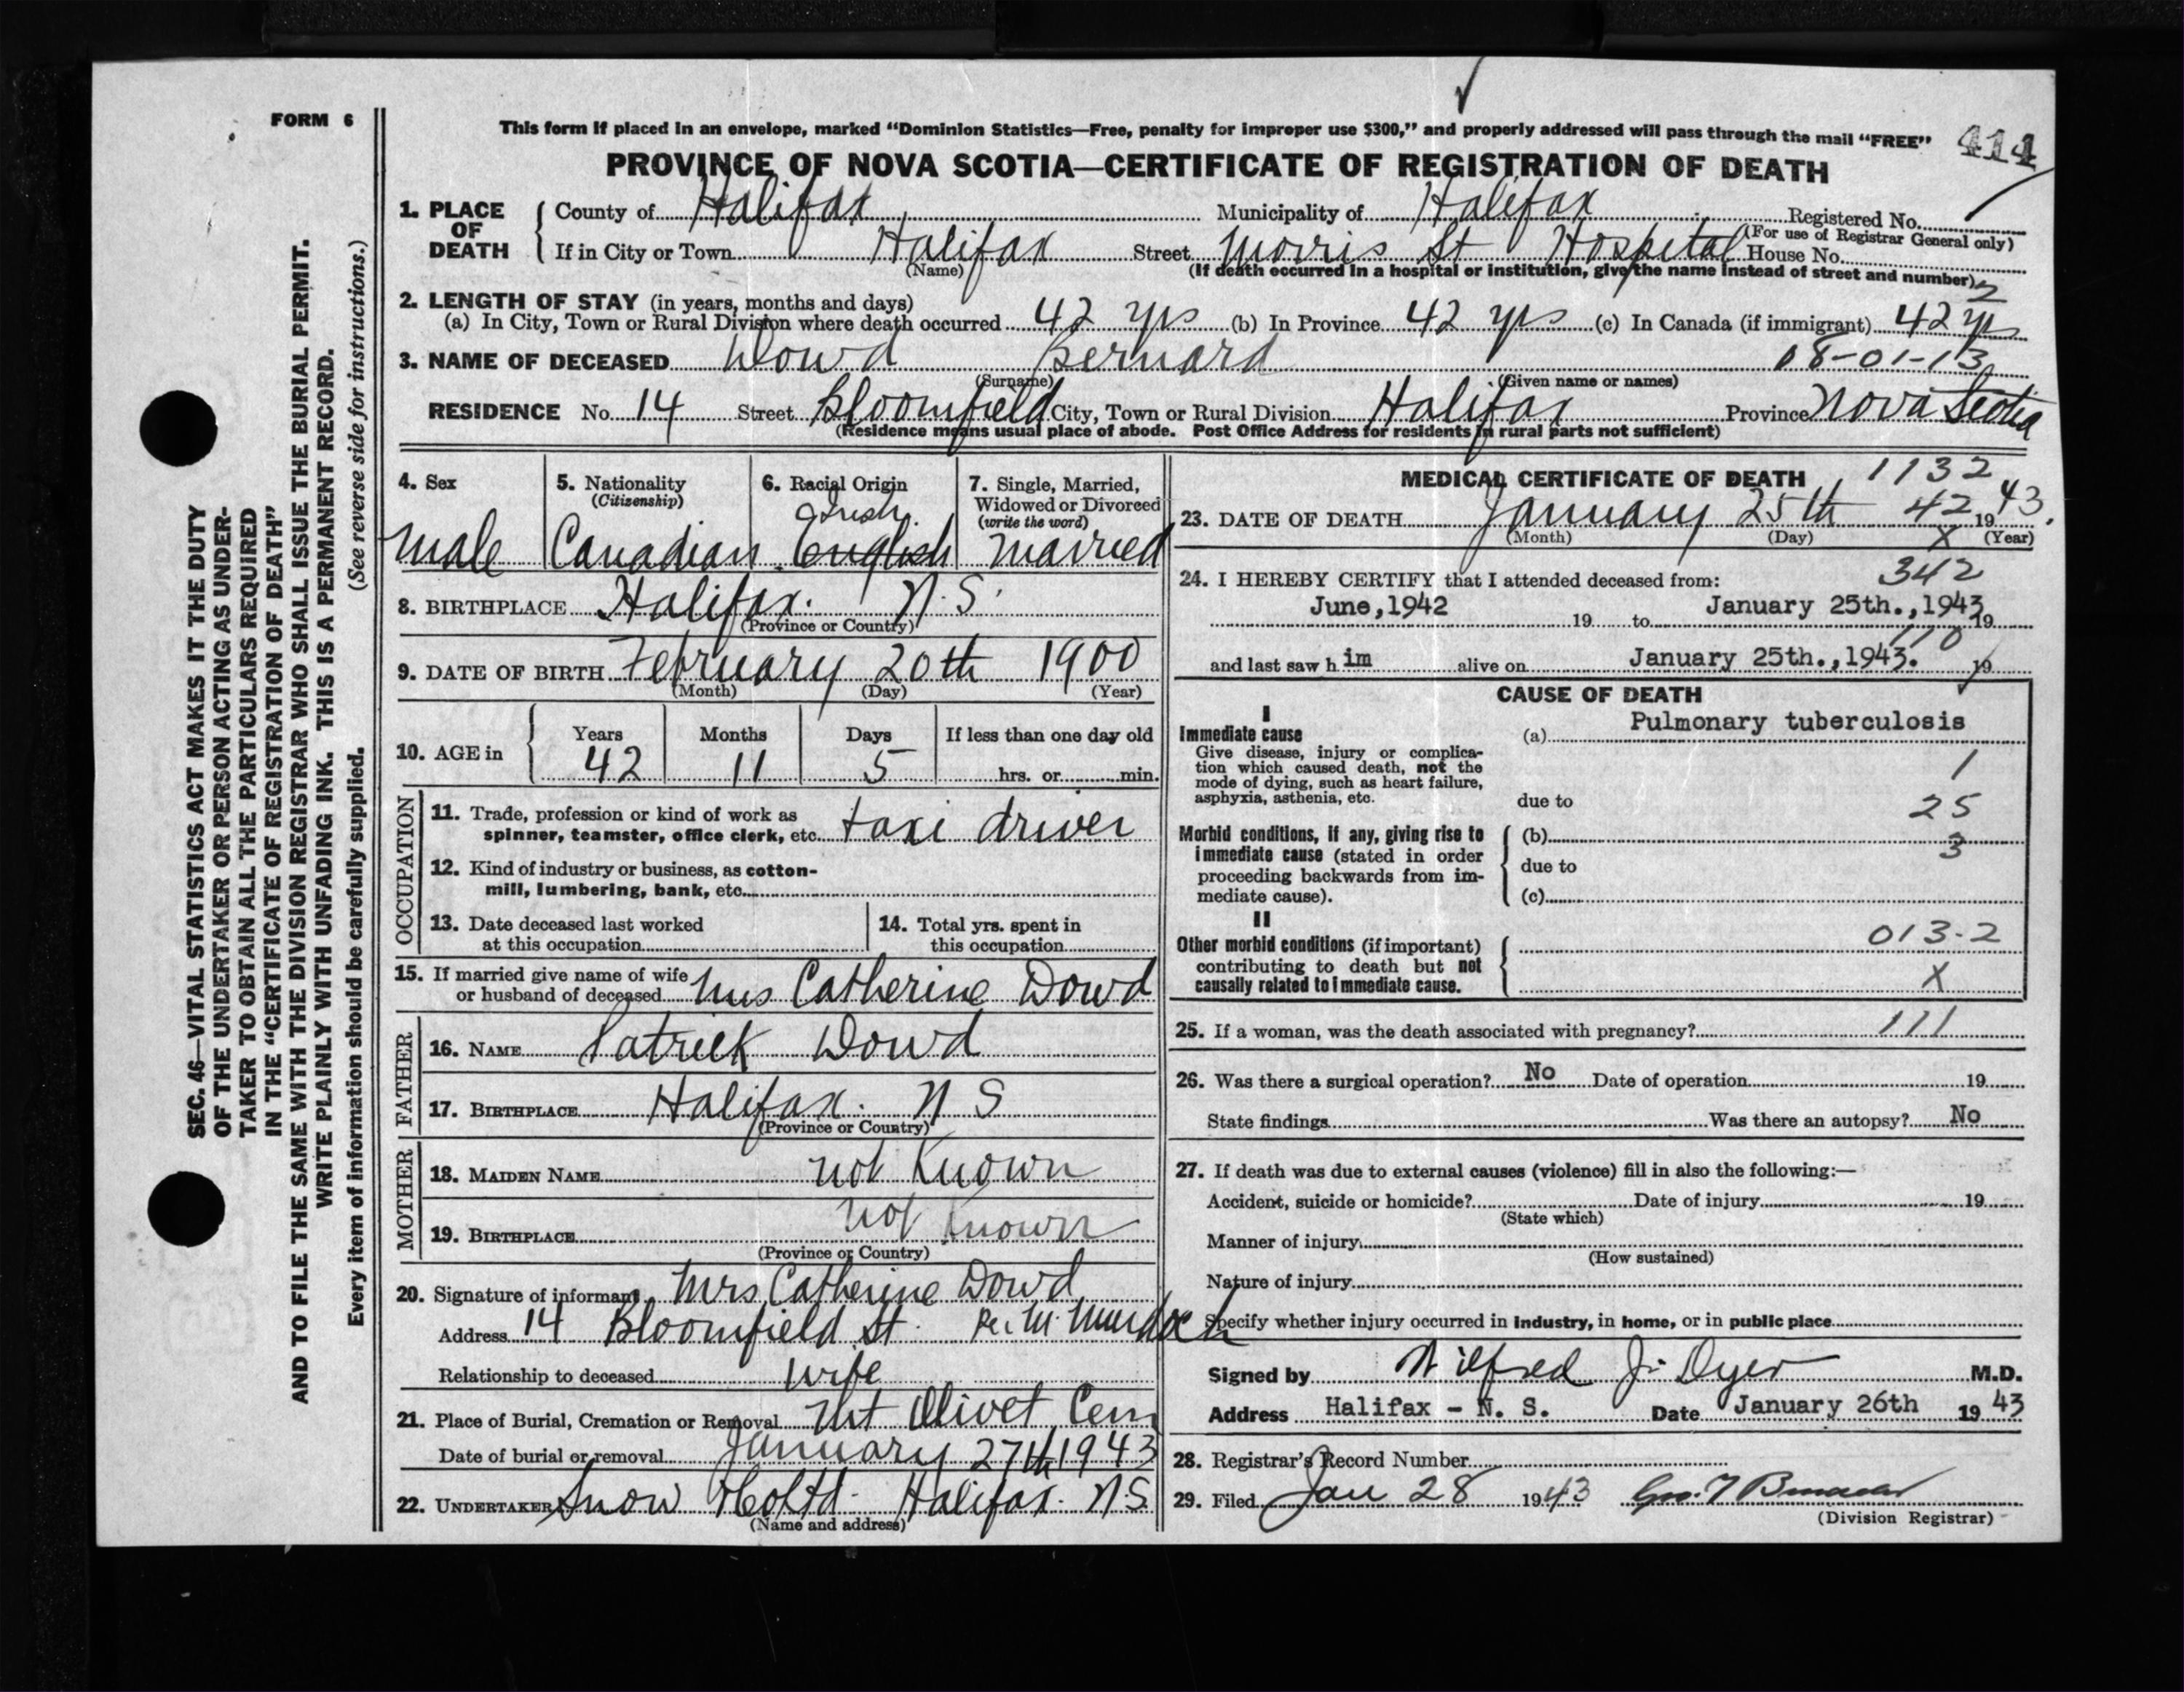 FORM 6
This form if placed in an envelope, marked "Dominion Statistics—Free, penalty for improper use $300," and properly addressed will pass through the mail "FREE"
414
PROVINCE OF NOVA SCOTIA—CERTIFICATE OF REGISTRATION OF DEATH
1. PLACE OF DEATH
County of Halifax Municipality of Halifax Registered No.
(For use of Registrar General only)
If in City or Town Halifax Street Morris St Hospital House No.
(Name) (If death occurred in a hospital or institution, give the name instead of street and number)
2
2. LENGTH OF STAY (in years, months and days)
(a) In City, Town or Rural Division where death occurred 42 yrs (b) In Province 42 yrs (c) In Canada (if immigrant) 42 yrs
3. NAME OF DECEASED Dowd Bernard 08-01-13
(Surname) (Given name or names)
RESIDENCE No. 14 Street Bloomfield City, Town or Rural Division Halifax Province Nova Scotia
(Residence means usual place of abode. Post Office Address for residents in rural parts not sufficient)
4. Sex
male
5. Nationality
(Citizenship)
Canadian
6. Racial Origin
Irish
English
7. Single, Married,
Widowed or Divorced
(write the word)
married
8. BIRTHPLACE Halifax. N.S.
(Province or Country)
9. DATE OF BIRTH February 20th 1900
(Month) (Day) (Year)
10. AGE in
Years Months Days If less than one day old
42 11 5 hrs. or min.
OCCUPATION
11. Trade, profession or kind of work as
spinner, teamster, office clerk, etc. taxi driver
12. Kind of industry or business, as cotton-
mill, lumbering, bank, etc.
13. Date deceased last worked
at this occupation
14. Total yrs. spent in
this occupation
15. If married give name of wife
or husband of deceased Mrs Catherine Dowd
FATHER
16. NAME Patrick Dowd
17. BIRTHPLACE Halifax. N S
(Province or Country)
MOTHER
18. MAIDEN NAME not Known
19. BIRTHPLACE not Known
(Province or Country)
20. Signature of informant Mrs Catherine Dowd
Address 14 Bloomfield St. Per. M. Murdoch
Relationship to deceased wife
21. Place of Burial, Cremation or Removal Mt Olivet Cem
Date of burial or removal January 27th 1943
22. UNDERTAKER Snow & Co Ltd. Halifax. N.S
(Name and address)
MEDICAL CERTIFICATE OF DEATH 1132
23. DATE OF DEATH January 25th 42 19 43.
(Month) (Day) X (Year)
24. I HEREBY CERTIFY that I attended deceased from: 342
June, 1942 19 to January 25th., 1943 19
110
and last saw h im alive on January 25th., 1943. 19
CAUSE OF DEATH
I
Immediate cause
Give disease, injury or complica-
tion which caused death, not the
mode of dying, such as heart failure,
asphyxia, asthenia, etc.
(a) Pulmonary tuberculosis
1
due to
25
Morbid conditions, if any, giving rise to
immediate cause (stated in order
proceeding backwards from im-
mediate cause).
(b) 3
due to
(c)
II
Other morbid conditions (if important)
contributing to death but not
causally related to immediate cause.
013-2
X
25. If a woman, was the death associated with pregnancy? 111
26. Was there a surgical operation? No Date of operation 19
State findings Was there an autopsy? No
27. If death was due to external causes (violence) fill in also the following:—
Accident, suicide or homicide? Date of injury 19
(State which)
Manner of injury
(How sustained)
Nature of injury
Specify whether injury occurred in industry, in home, or in public place
Signed by Wilfred J. Dyer M.D.
Address Halifax - N. S. Date January 26th 19 43
28. Registrar's Record Number
29. Filed Jan 28 1943 Geo. T
(Division Registrar)
SEC. 46—VITAL STATISTICS ACT MAKES IT THE DUTY
OF THE UNDERTAKER OR PERSON ACTING AS UNDER-
TAKER TO OBTAIN ALL THE PARTICULARS REQUIRED
IN THE "CERTIFICATE OF REGISTRATION OF DEATH"
AND TO FILE THE SAME WITH THE DIVISION REGISTRAR WHO SHALL ISSUE THE BURIAL PERMIT.
WRITE PLAINLY WITH UNFADING INK. THIS IS A PERMANENT RECORD.
Every item of information should be carefully supplied. (See reverse side for instructions.)